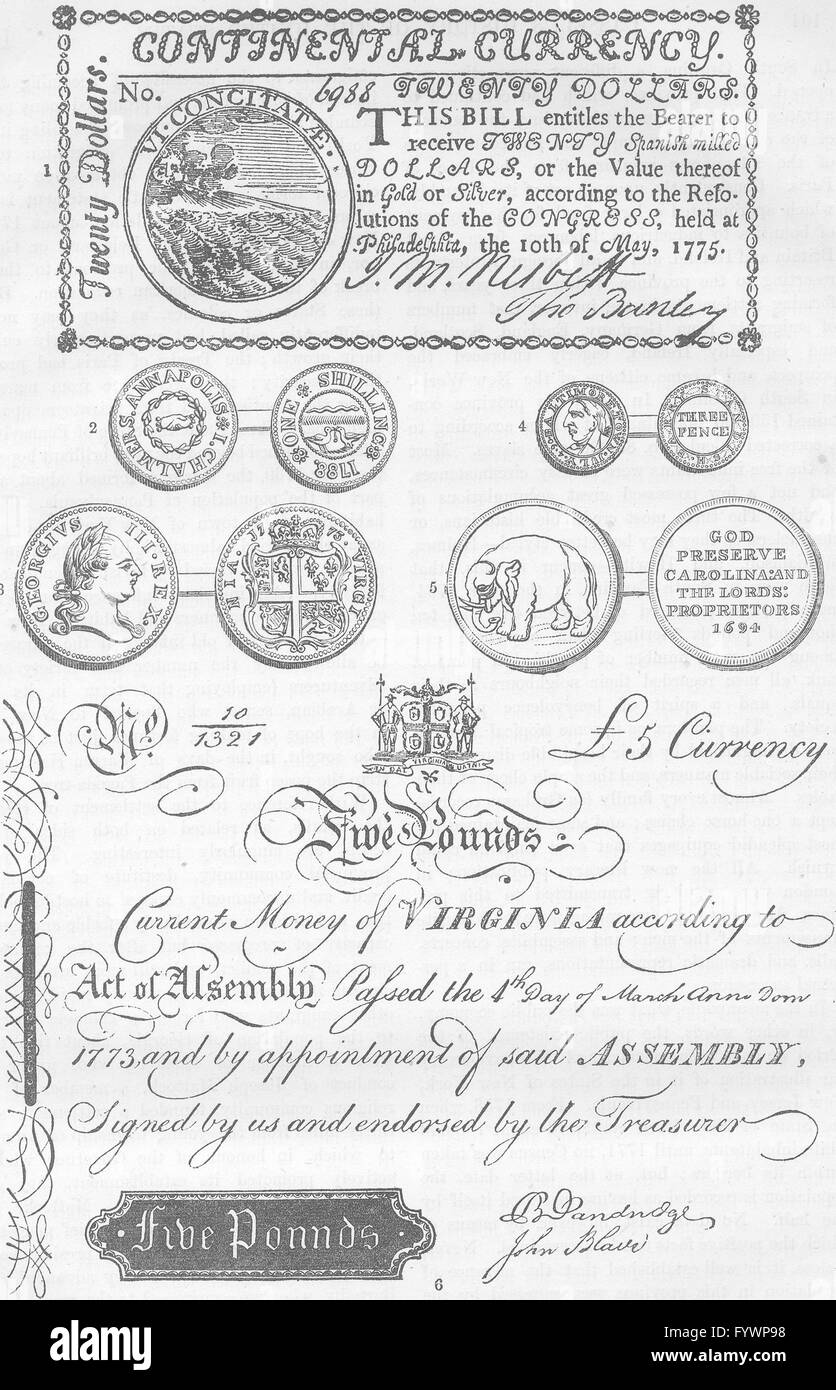 CONTINENTAL CURRENCY.
Twenty Dollars.
No. 6988 TWENTY DOLLARS.
VI CONCITATÆ.
THIS BILL entitles the Bearer to
receive TWENTY Spanish milled
DOLLARS, or the Value thereof
in Gold or Silver, according to the Reso-
lutions of the CONGRESS, held at
Philadelphia, the 10th of May, 1775.
J M. Nesbitt
Tho Barclay
1
2
I. CHALMERS. ANNAPOLIS
ONE SHILLING
1783
4
BALTIMORE TOWN JULY 4
THREE
PENCE
3
GEORGIVS III. REX.
VIRGI NIA. 1773
5
GOD
PRESERVE
CAROLINA: AND
THE LORDS:
PROPRIETORS.
1694
No 10
1321
EN DAT VIRGINIA
£5 Currency
Five Pounds
Current Money of VIRGINIA according to
Act of Assembly Passed the 4th Day of March Anno Dom
1773, and by appointment of said ASSEMBLY,
Signed by us and endorsed by the Treasurer
Five Pounds
B Dandridge
John Blair
6
alamy
alamy
Image ID: FYWP98
www.alamy.com